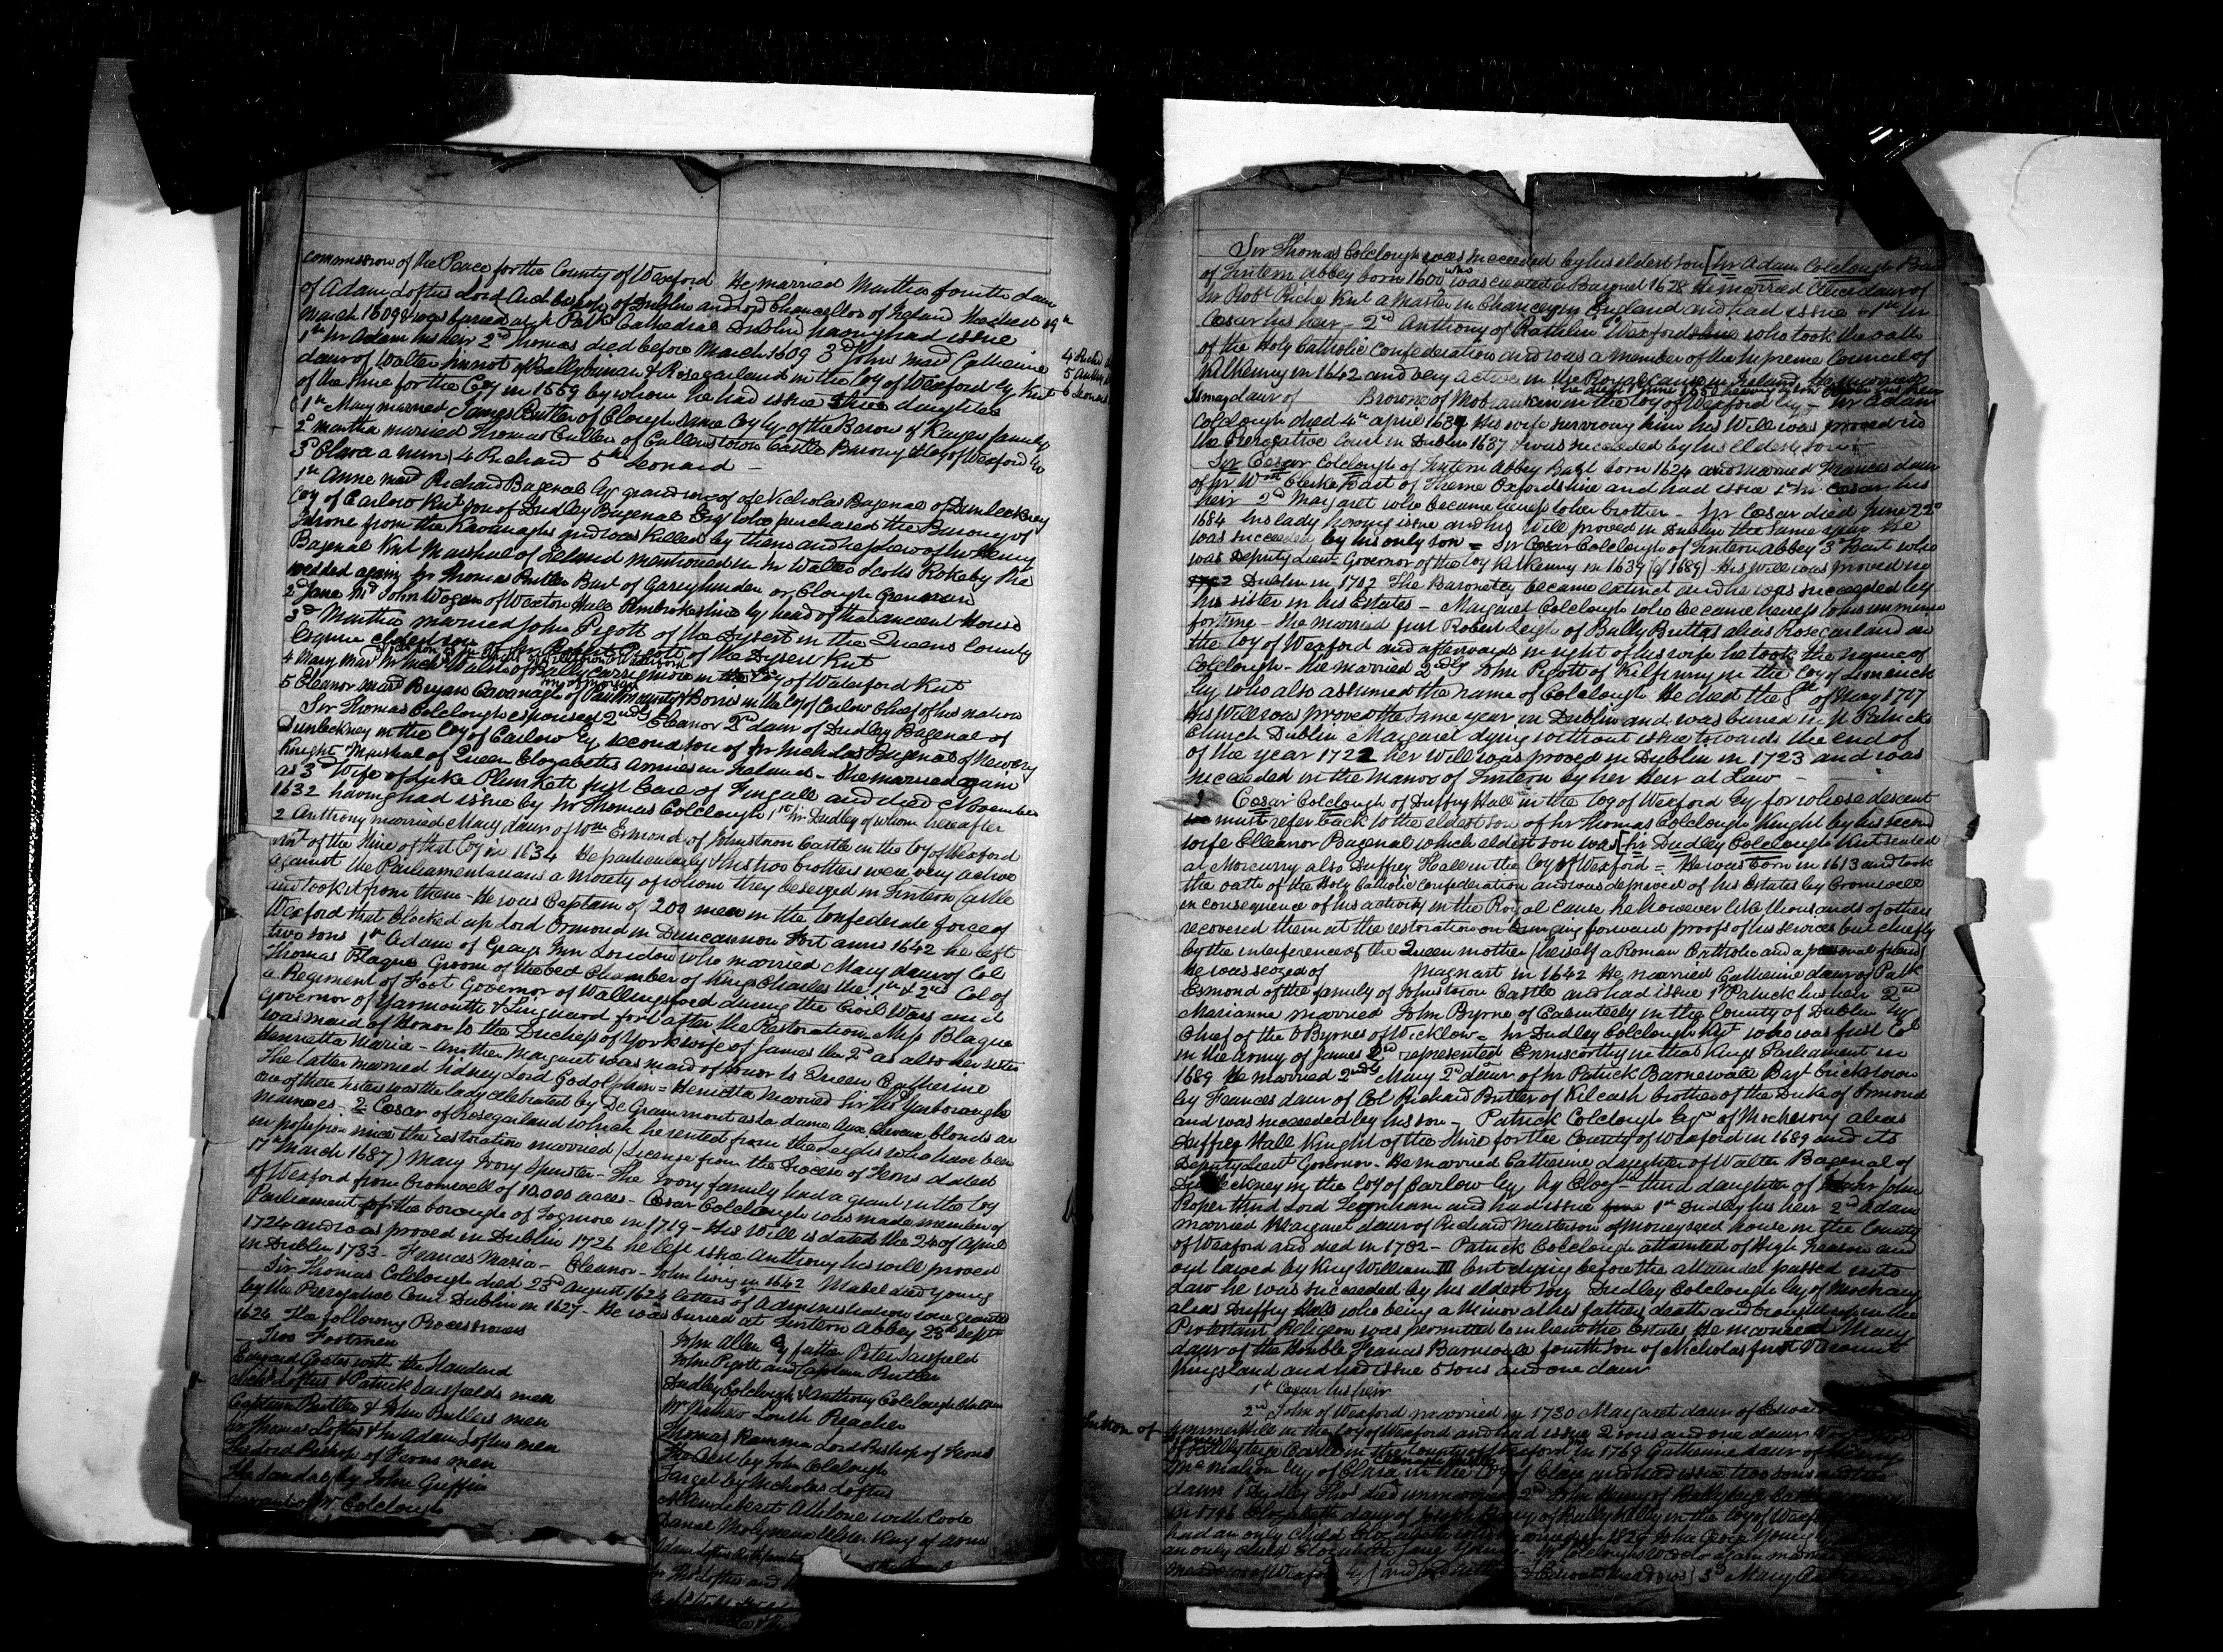 commission of the Peace for the County of Wexford He married Martha fourth daur
of Adam Loftus Lord Archbishop of Dublin and Lord Chancellor of Ireland She died 19th
March 1609 & was buried at St Patks Cathedral Dublin having had issue
1st Sir Adam his heir 2d Thomas died before March 1609 3d John mard Catherine
daur of Walter Sinnot of Ballybrinan & Rosegarland in the Coy of Wexford Esq Knt
4 Richd
5 Anthy
6 Leonard
of the Shire for the Coy in 1559 by whom he had issue three daughters
1st Mary married James Butler of Clough same Coy Esq of the Barons of Kayer family
2d Martha married Thomas Cullen of Cullenstown Castle Barony & Coy of Wexford
3d Clara a nun) 4 Richard 5th Leonard -
1st Anne mard Richard Bagenal Esq grandson of Nicholas Bagenal of Dunleckney
Coy of Carlow Knt son of Dudley Bagenal Esq who purchased the Barony of
Idrone from the Kavanaghs and was killed by them and nephew of Sir Henry
Bagenal Knt Marshal of Ireland mentioned in Sir Walter Scotts Rokeby She
wedded again Sir Thomas Butler Bart of Garryhunden or Clough Grennan
2d Jane Md John Wogan of Weston Hall Pembrokeshire Esq head of that ancient House
3rd Martha married John Pigott of the Dysert in the Queens County
Esquire eldest son of Sir Robert Pigott of the Dysert Knt
4 Mary mard Sir Walsh of Ballycarrigmore in the Coy of Waterford Knt
5 Eleanor mard Bryan Cavanagh of & Borris in the Coy of Carlow Chief of his nation
Sir Thomas Colclough espoused 2ndly Eleanor 2d daur of Dudley Bagenal of
Dunleckney in the Coy of Carlow Esq second son of Sir Nicholas Bagenal of Newery
Knight Marshal of Queen Elizabeths armies in Ireland - She married again
as 3d Wife of Luke Plunkett first Earl of Fingall and died November
1632 having had issue by Sir Thomas Colclough 1st Sir Dudley of whom hereafter
2 Anthony married Mary daur of Wm Esmond of Johnstown Castle in the Coy of Wexford
Knt of the Shire of that Coy in 1634 He particularly & his two brothers were very active
against the Parliamentarians a Moiety of whom they beseiged in Tintern Castle
and took it from them - He was Captain of 200 men in the Confederate force of
Wexford that blocked up Lord Ormond in Duncannon Fort anno 1642 he left
two sons 1st Adam of Grays Inn London who married Mary daur of Col
Thomas Blague Groom of the bed Chamber of Kings Charles the 1st & 2nd Col of
a Regiment of Foot Governor of Wallingsford during the Civil Wars and
Governor of Yarmouth & Linguard fort after the Restoration Miss Blague
was maid of Honor to the Duchess of York wife of James the 2d as also her sister
Henrietta Maria - another Margaret was maid of honor to Queen Catherine
The latter married Sidney Lord Godolphin = Henrietta married Sir Ths Yarborough
one of these sisters was the lady celebrated by De Grammont as la dame aux cheveux blonds
2 Cesar of Rosegarland which he rented from the Leighs who have been
in possession since the restoration married (License from the Diocese of Ferns dated
17th March 1687) Mary Ivory Spinster - The Ivory family had a grant in the Coy
of Wexford from Cromwell of 10,000 acres - Cesar Colclough was made member of
Parliament for the borough of Togmore in 1719 - His Will is dated the 24 of April
1724 and was proved in Dublin 1726 he left issue Anthony his will proved
in Dublin 1733 - Frances Maria - Eleanor - John living in 1642 Mabel died young
Sir Thomas Colclough died 23d August 1624 letters of Administration were granted
by the Prerogative Court Dublin in 1627 - He was buried at Tintern Abbey 23rd Septr
1624 The following Processioners
Two Footmen
Edward Coates with the Standard
Loftus & Patrick Sarsfields men
Captain Butler & John Butlers men
Sir Thomas Loftus & Sr Adam Loftus men
The Lord Bishop of Ferns men
The Standard by John Griffin
Servants of Mr Colclough
John Allen Esq father Peter Sarsfield
John Pigott and Captain Butler
Dudley Colclough & Anthony Colclough
Mr Louth Preacher
Thomas Ramma Lord Bishop of Ferns
The Crest by John Colclough
Target by Nicholas Loftus
Athlone with Coote
Daniel Molyneux Ulster King of arms
Adam Loftus
Sir Thos Loftus and
Sir Thomas Colclough was succeeded by his eldest son [Sir Adam Colclough Bart
of Tintern Abbey born 1600 who was created a Baronet 1628 He married Alice daur of
Sir Robt Riche Knt a Master in Chancery in England and had issue - 1st Sir
Cesar his heir - 2nd Anthony of Rathlin Wexfordshire who took the oath
of the Holy Catholic Confederation and was a member of the Supreme Council of
Kilkenny in 1642 and very active in the Royal cause in Ireland He married
Ismay daur of Browne of Mulrankin in the Coy of Wexford Esq - Sir Adam
Colclough died 4th april 1637 His wife surviving him his Will was proved in
the Prerogative Court in Dublin 1637 & was succeeded by his eldest son -
Sir Cesar Colclough of Tintern Abbey Bart born 1624 and married Frances daur
of Sir Wm Clerke Bart of Oxfordshire and had issue 1st Sir Cesar his
heir 2d Margaret who became heiress to her brother - Sir Cesar died June 22d
1684 his lady having issue and his Will proved in Dublin the same year He
was succeeded by his only son = Sir Cesar Colclough of Tintern Abbey 3d Bart who
was Deputy Lieut Governor of the Coy Kilkenny in 1639 (q 1689) - His will was proved in
Dublin in 1702 The Baronetcy became extinct and he was succeeded by
his sister in his Estates - Margaret Colclough who became heiress to his immense
fortune - She married first Robert Leigh of Bally Buttas alias Rosegarland in
the Coy of Wexford and afterwards in right of his wife he took the name of
Colclough - She married 2ndly John Pigott of Kilfinny in the Coy of Limerick
Esq who also assumed the name of Colclough He died the 8th of May 1717
His Will was proved the same year in Dublin and was buried in St Patricks
Church Dublin Margaret dying without issue towards the end of
of the year 1722 her Will was proved in Dublin in 1723 and was
succeeded in the Manor of Tintern by her Heir at Law -
Cesar Colclough of Duffry Hall in the Coy of Wexford Esq for whose descent
must refer back to the eldest son of Sir Thomas Colclough Knight by his second
wife Elleanor Bagenal which eldest son was [Sir Dudley Colclough Knt seated
at Morcurry also Duffrey Hall in the Coy of Wexford = He was born in 1613 and took
the oath of the Holy Catholic Confederation and was deprived of his Estates by Cromwell
in consequence of his activity in the Royal cause he however like thousands of others
recovered them at the restoration on bringing forward proofs of his services but chiefly
by the interference of the Queen mother (herself a Roman Catholic and a personal friend)
he was seized of Magnart in 1642 He married Catherine daur of Patk
Esmond of the family of Johnstown Castle and had issue 1st Patrick his heir 2nd
Marianne married John Byrne of Cabinteely in the County of Dublin Esq
Chief of the O Byrnes of Wicklow - Sir Dudley Colclough Knt who was first Col
in the army of James 2nd represented Enniscorthy in that Kings Parliament in
1689 He married 2ndly Mary 2d daur of Sir Patrick Barnewall Bart Crickstown
by Frances daur of Col Richard Butler of Kilcash brother of the Duke of Ormond
and was succeeded by his son - Patrick Colclough Esqr of Mochurry alias
Duffrey Hall Knight of the Shire for the County of Wexford in 1689 and its
Deputy Lieut Governor - He married Catherine daughter of Walter Bagenal of
Dunleckney in the Coy of Carlow Esq by Elizth third daughter of Sir John
Roper third Lord Teynham and had issue 1st Dudley his heir 2nd Adam
married Margaret daur of Richard Masterson of Moneyseed house in the County
of Wexford and died in 1782 - Patrick Colclough attainted of High Treason and
out lawed by King William III but dying before the attainder passed into
Law he was succeeded by his eldest son Dudley Colclough Esq of Mochury
alias Duffry Hall who being a Minor at his fathers death and brought up in the
Protestant Religion was permitted to inherit the Estates He married Mary
daur of the Honble Francis Barnwall fourth son of Nicholas first Viscount
Kingsland and had issue 5 sons and one daur
1st Cesar his heir
2nd John of Wexford married in 1730 Margaret daur of Edward
Sutton of Summerhill in the Coy of Wexford and had issue 2 sons and one daur
of Ballyteige Castle in the County of Wexford md in 1769 Catherine daur of
Mc Mahon Esq of Clare in the Coy of Clare and had issue two sons and two
daurs 1st Dudley Thos died unmarried 2nd John Henry of Ballyteige Castle
in 1796 Elizabeth daur of Joseph of Ballykelly in the Coy of Wexford
had an only child Elizabeth who married in 1824 John George Young
an only child Elizabeth Jane Young - Mr Colcloughs widow again married
Meadows of Wexford Esq 3d Mary